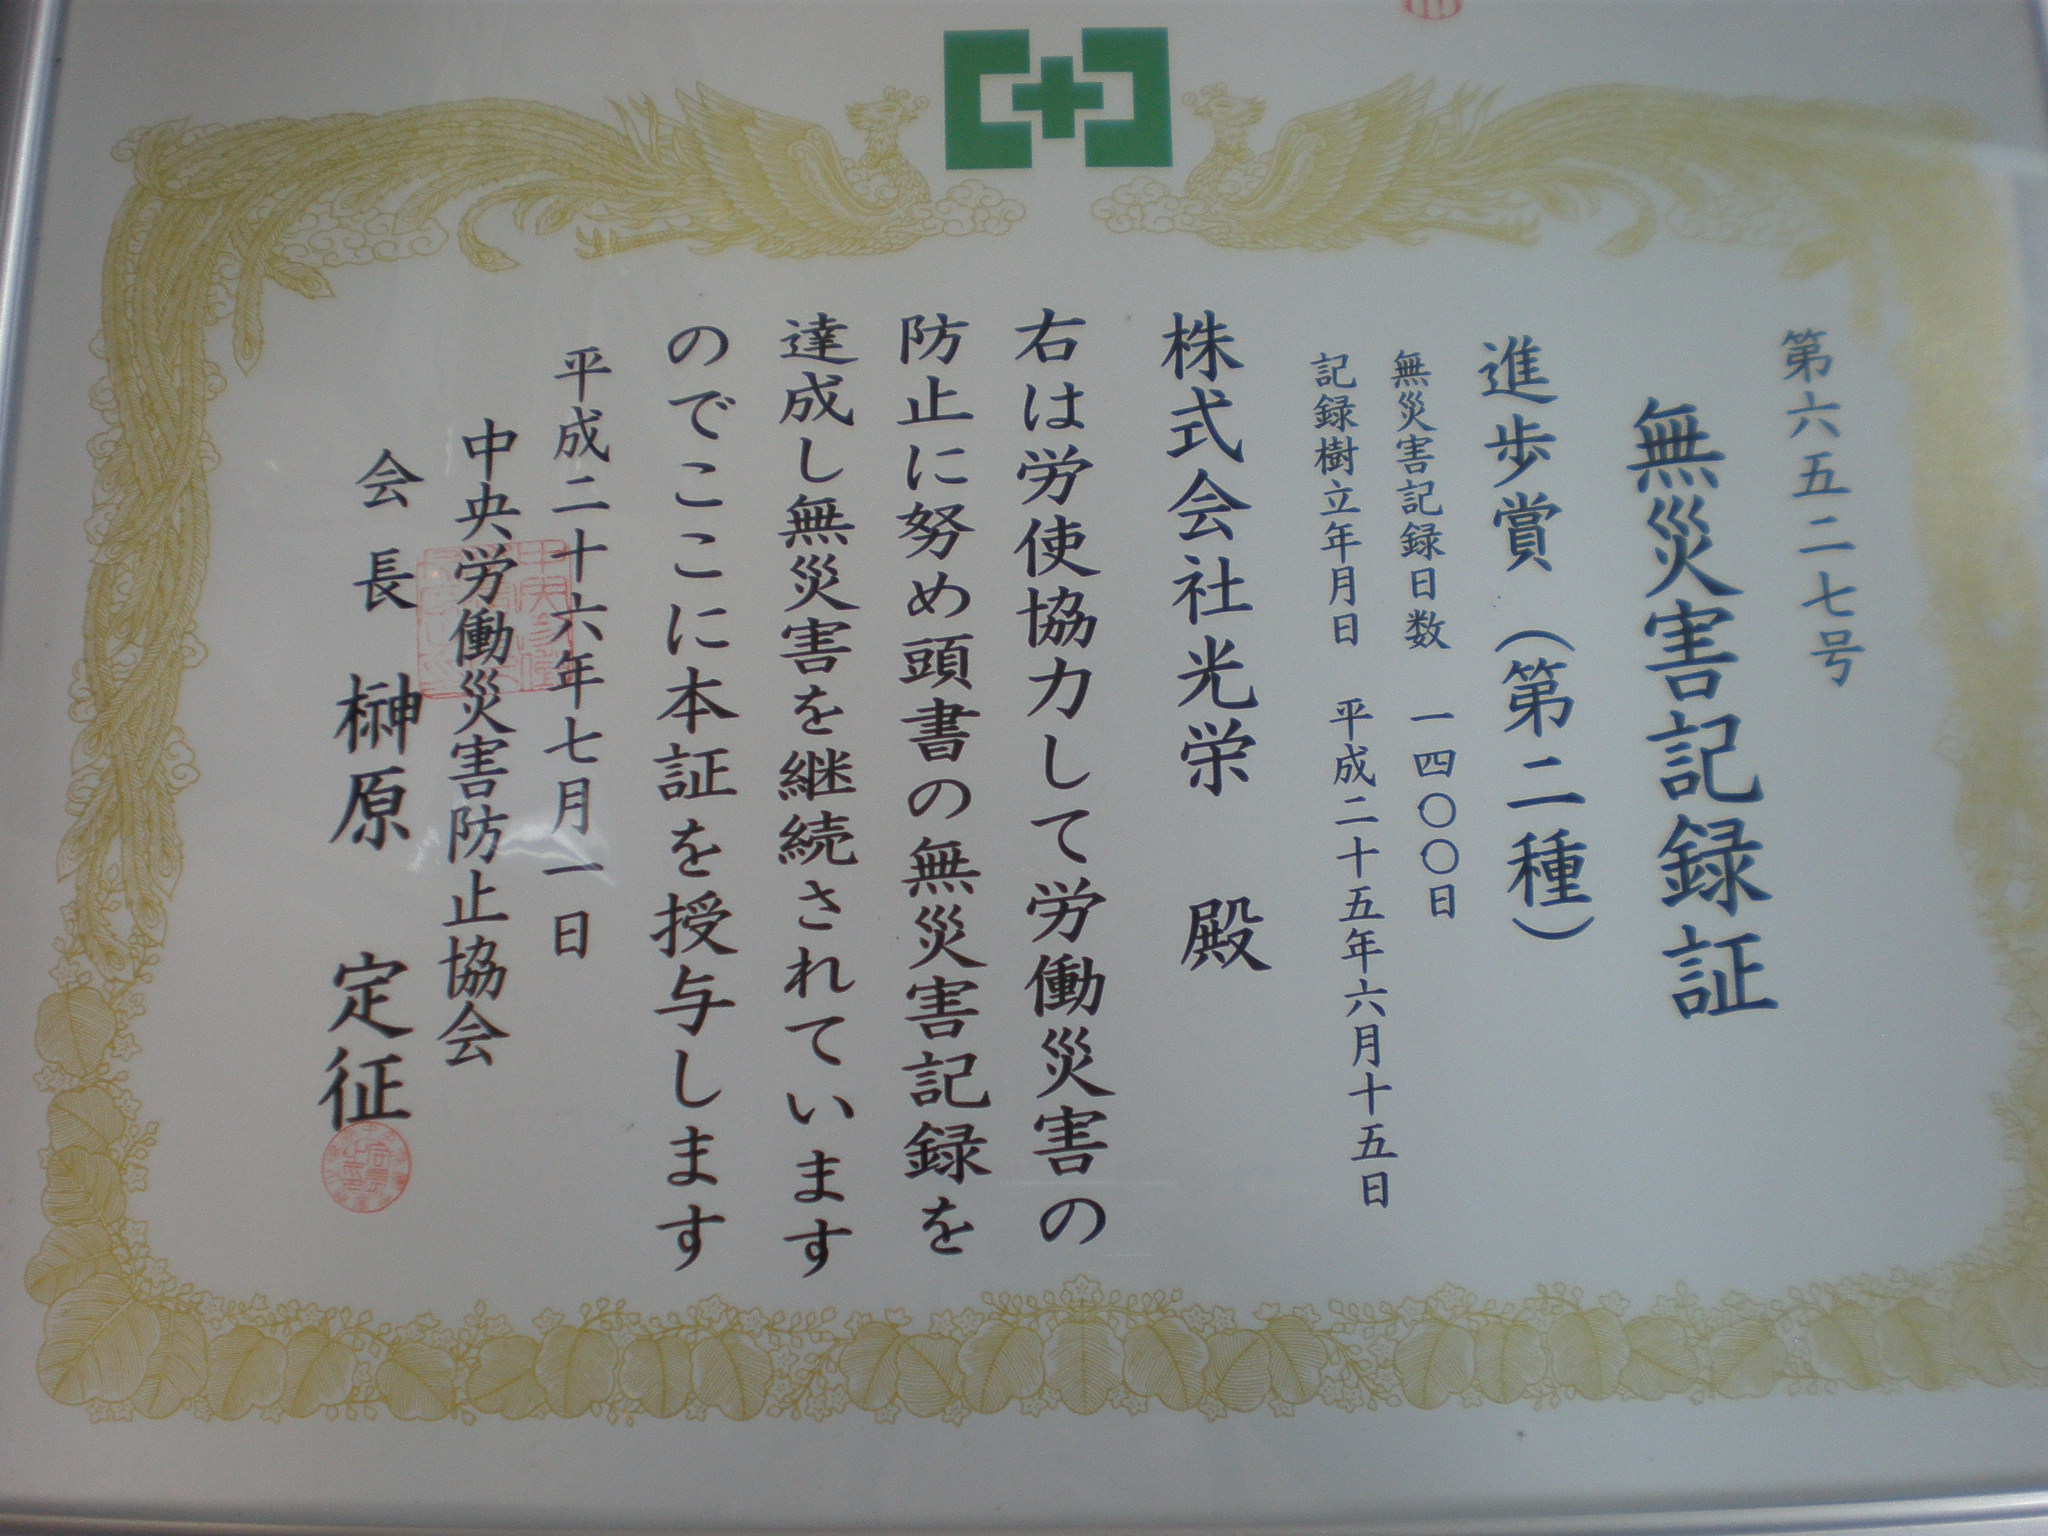 第六五二七号
無災害記録証
進歩賞（第二種）
無災害記録日数　一四〇〇日
記録樹立年月日　平成二十五年六月十五日
株式会社光栄　殿
右は労使協力して労働災害の
防止に努め頭書の無災害記録を
達成し無災害を継続されています
のでここに本証を授与します
平成二十六年七月一日
中央労働災害防止協会
会長　榊原　定征